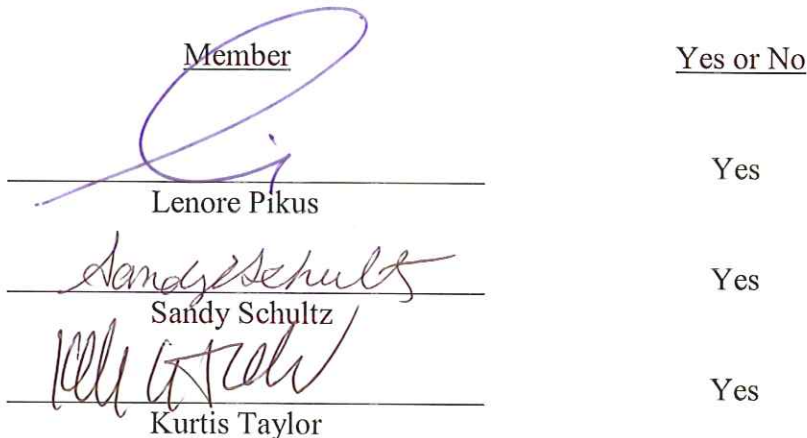 Member Yes or No
Yes
Lenore Pikus
Sandy Schultz
Yes
Sandy Schultz
Yes
Kurtis Taylor